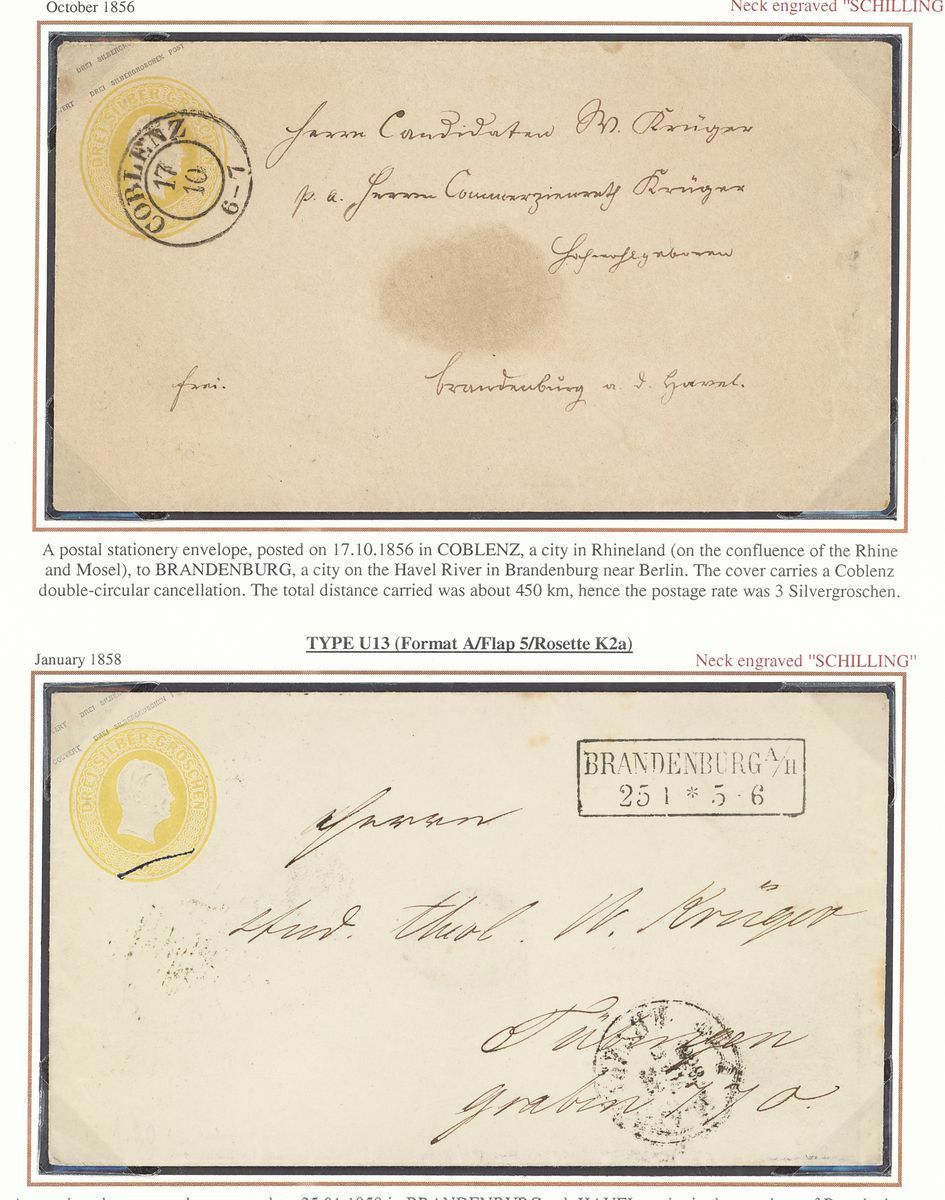 October 1856
Neck engraved "SCHILLING
DREI SILBERGROSCHEN POST
DREI SILBERGROSCHEN
COBLENZ
17
10
6-7
Herrn Candidaten W. Krüger
p. a. Herrn Commerzienrath Krüger
Hochwohlgeboren
frei.
Brandenburg a. d. Havel.
A postal stationery envelope, posted on 17.10.1856 in COBLENZ, a city in Rhineland (on the confluence of the Rhine
and Mosel), to BRANDENBURG, a city on the Havel River in Brandenburg near Berlin. The cover carries a Coblenz
double-circular cancellation. The total distance carried was about 450 km, hence the postage rate was 3 Silvergroschen.
TYPE U13 (Format A/Flap 5/Rosette K2a)
January 1858
Neck engraved "SCHILLING"
DREI SILBERGROSCHEN
DREI SILBER GROSCHEN
BRANDENBURG A/H
25 1 * 5-6
Herrn
stud. theol. W. Krüger
Tübingen
graben 770.